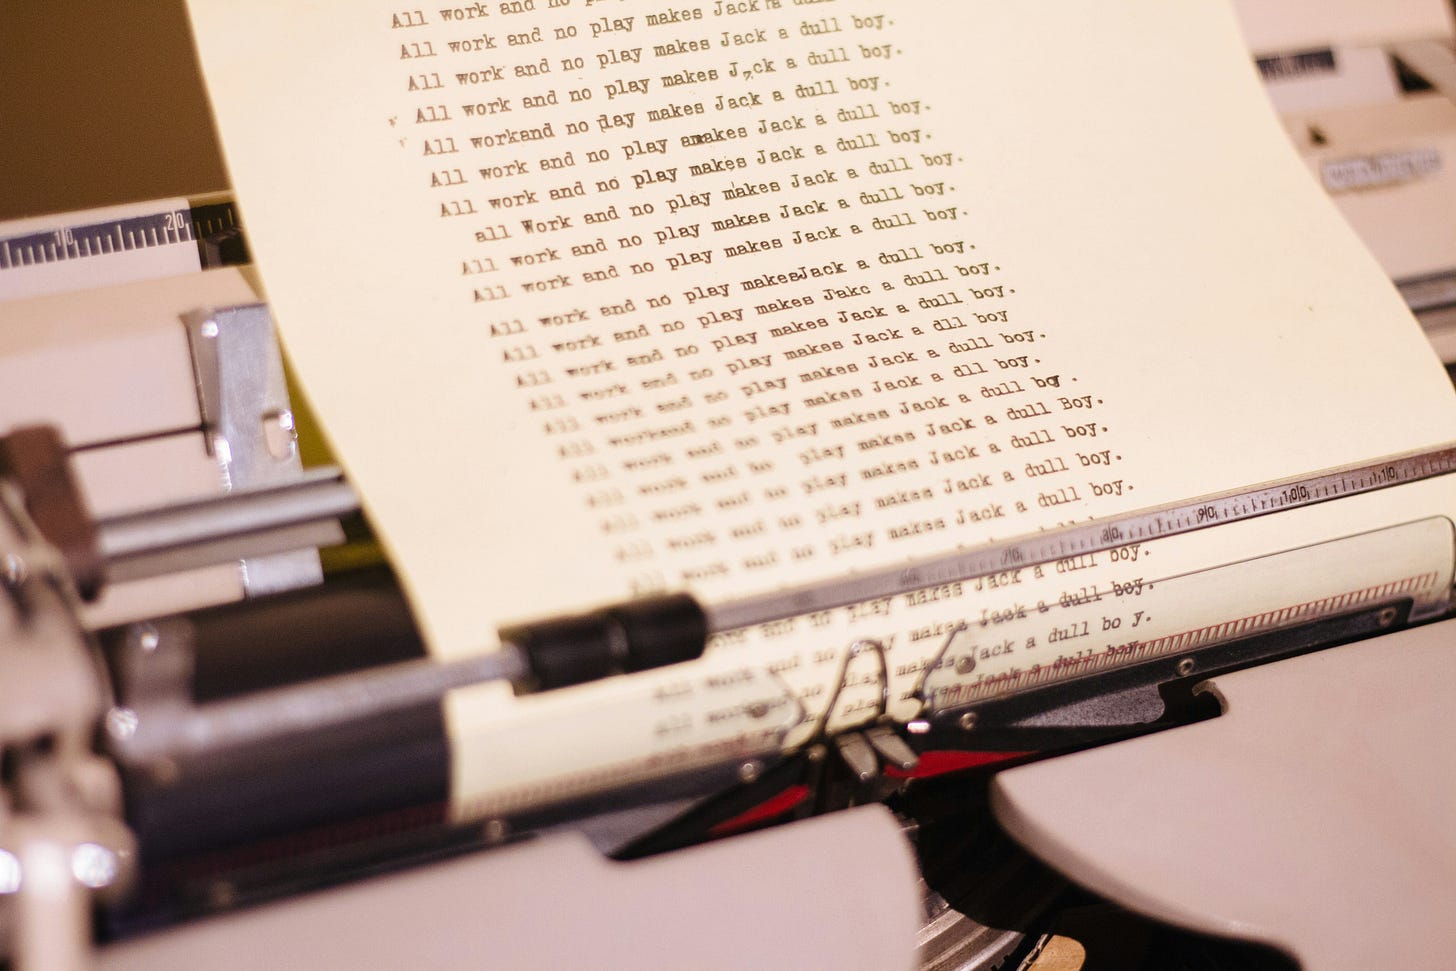 All work and no
All work and no play makes Jack a dull
All work and no play makes Jack a dull boy.
All work and no play makes J,ck a dull boy.
All workand no play makes Jack a dull boy.
All work and no play amakes Jack a dull boy.
All work and no play makes Jack a dull boy.
all Work and no play makes Jack a dull boy.
All work and no play makes Jack a dull boy.
All work and no play makes Jack a dull boy.
All work and no play makesJack a dull boy.
All work and no play makes Jakc a dull boy.
All work and no play makes Jack a dull boy.
All work and no play makes Jack a dll boy
All work and no play makes Jack a dull boy.
All workand no play makes Jack a dll boy.
All work and no play makes Jack a dull
All work and no play makes Jack a dull Boy.
All work and no play makes Jack a dull boy.
All work and no play makes Jack a dull boy.
All work and no play makes Jack a dull boy.
and no play makes Jack a dull boy.
no play makes Jack a dull boy.
no play makes Jack a dull bo y.
play makes Jack a dull boy.
10 20
70 80 90 100 110